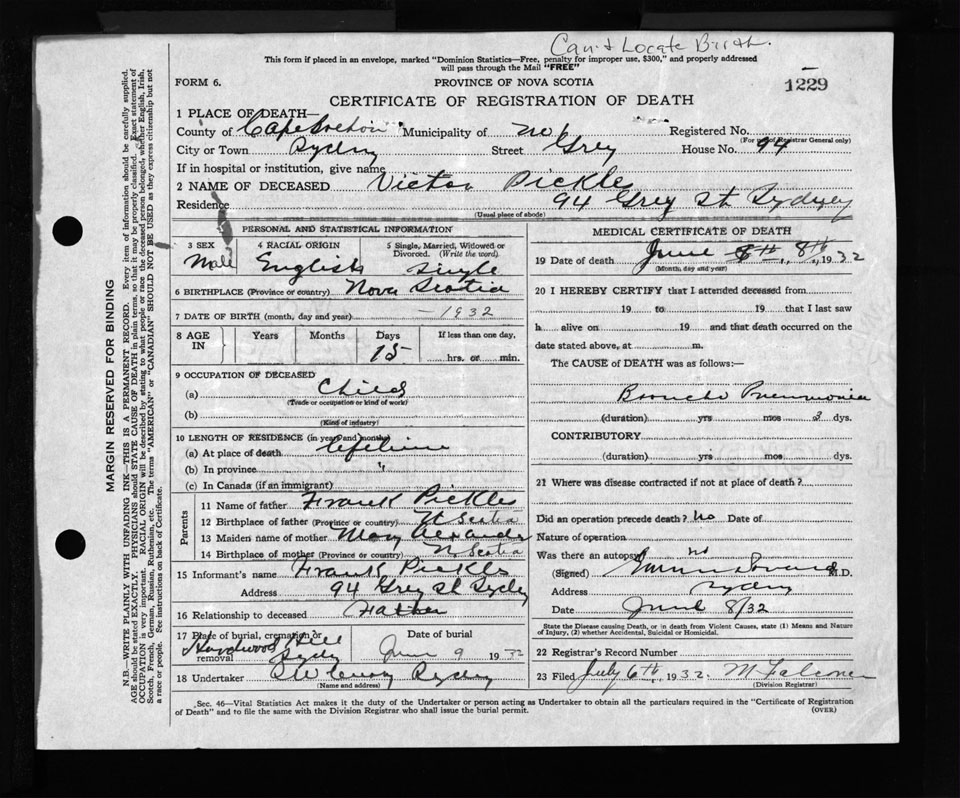 Can't Locate Birth.
This form if placed in an envelope, marked "Dominion Statistics—Free, penalty for improper use, $300," and properly addressed
will pass through the Mail "FREE"
FORM 6.
PROVINCE OF NOVA SCOTIA
1229
CERTIFICATE OF REGISTRATION OF DEATH
1 PLACE OF DEATH—
County of Cape Breton Municipality of No 6 Registered No.
(For use of Registrar General only)
City or Town Sydney Street Grey House No. 94
If in hospital or institution, give name
2 NAME OF DECEASED Victor Pickles
Residence 94 Grey St Sydney
(Usual place of abode)
PERSONAL AND STATISTICAL INFORMATION
3 SEX 4 RACIAL ORIGIN 5 Single, Married, Widowed or
Divorced. (Write the word)
Male English Single
6 BIRTHPLACE (Province or country) Nova Scotia
7 DATE OF BIRTH (month, day and year) — 1932
8 AGE IN Years Months Days If less than one day,
15 hrs. or min.
9 OCCUPATION OF DECEASED
(a) Child
(Trade or occupation or kind of work)
(b)
(Kind of industry)
10 LENGTH OF RESIDENCE (in years and months)
(a) At place of death lifetime
(b) In province "
(c) In Canada (if an immigrant)
Parents
11 Name of father Frank Pickles
12 Birthplace of father (Province or country) N Scotia
13 Maiden name of mother Mary
14 Birthplace of mother (Province or country) N Scotia
15 Informant's name Frank Pickles
Address 94 Grey St Sydney
16 Relationship to deceased Father
17 Place of burial, cremation or
removal Hardwood Hill
Sydney
Date of burial
June 9 1932
18 Undertaker Sydney
(Name and address)
MEDICAL CERTIFICATE OF DEATH
19 Date of death June 8th, 8th, 1932
(Month, day and year)
20 I HEREBY CERTIFY that I attended deceased from
19 to 19 that I last saw
h alive on 19 and that death occurred on the
date stated above, at m.
The CAUSE of DEATH was as follows:—
Broncho Pneumonia
(duration) yrs mos 3 dys.
CONTRIBUTORY
(duration) yrs mos. dys.
21 Where was disease contracted if not at place of death?
Did an operation precede death? no Date of
Nature of operation
Was there an autopsy no
(Signed) M.D.
Address Sydney
Date June 8/32
State the Disease causing Death, or in death from Violent Causes, state (1) Means and Nature
of Injury, (2) whether Accidental, Suicidal or Homicidal.
22 Registrar's Record Number
23 Filed July 6th, 1932. M Falconer
(Division Registrar)
Sec. 46—Vital Statistics Act makes it the duty of the Undertaker or person acting as Undertaker to obtain all the particulars required in the "Certificate of Registration
of Death" and to file the same with the Division Registrar who shall issue the burial permit. (OVER)
MARGIN RESERVED FOR BINDING
N.B.—WRITE PLAINLY WITH UNFADING INK—THIS IS A PERMANENT RECORD. Every item of information should be carefully supplied.
AGE should be stated EXACTLY. PHYSICIANS should STATE CAUSE OF DEATH in plain terms, so that it may be properly classified. Exact statement of
OCCUPATION is very important. RACIAL ORIGIN will be described by stating to what people or race the deceased person belonged, whether English, Irish,
Scotch, French, German, Russian, Ruthenian, etc. The terms "AMERICAN" or "CANADIAN" SHOULD NOT BE USED as they express citizenship but not
a race or people. See instructions on back of Certificate.